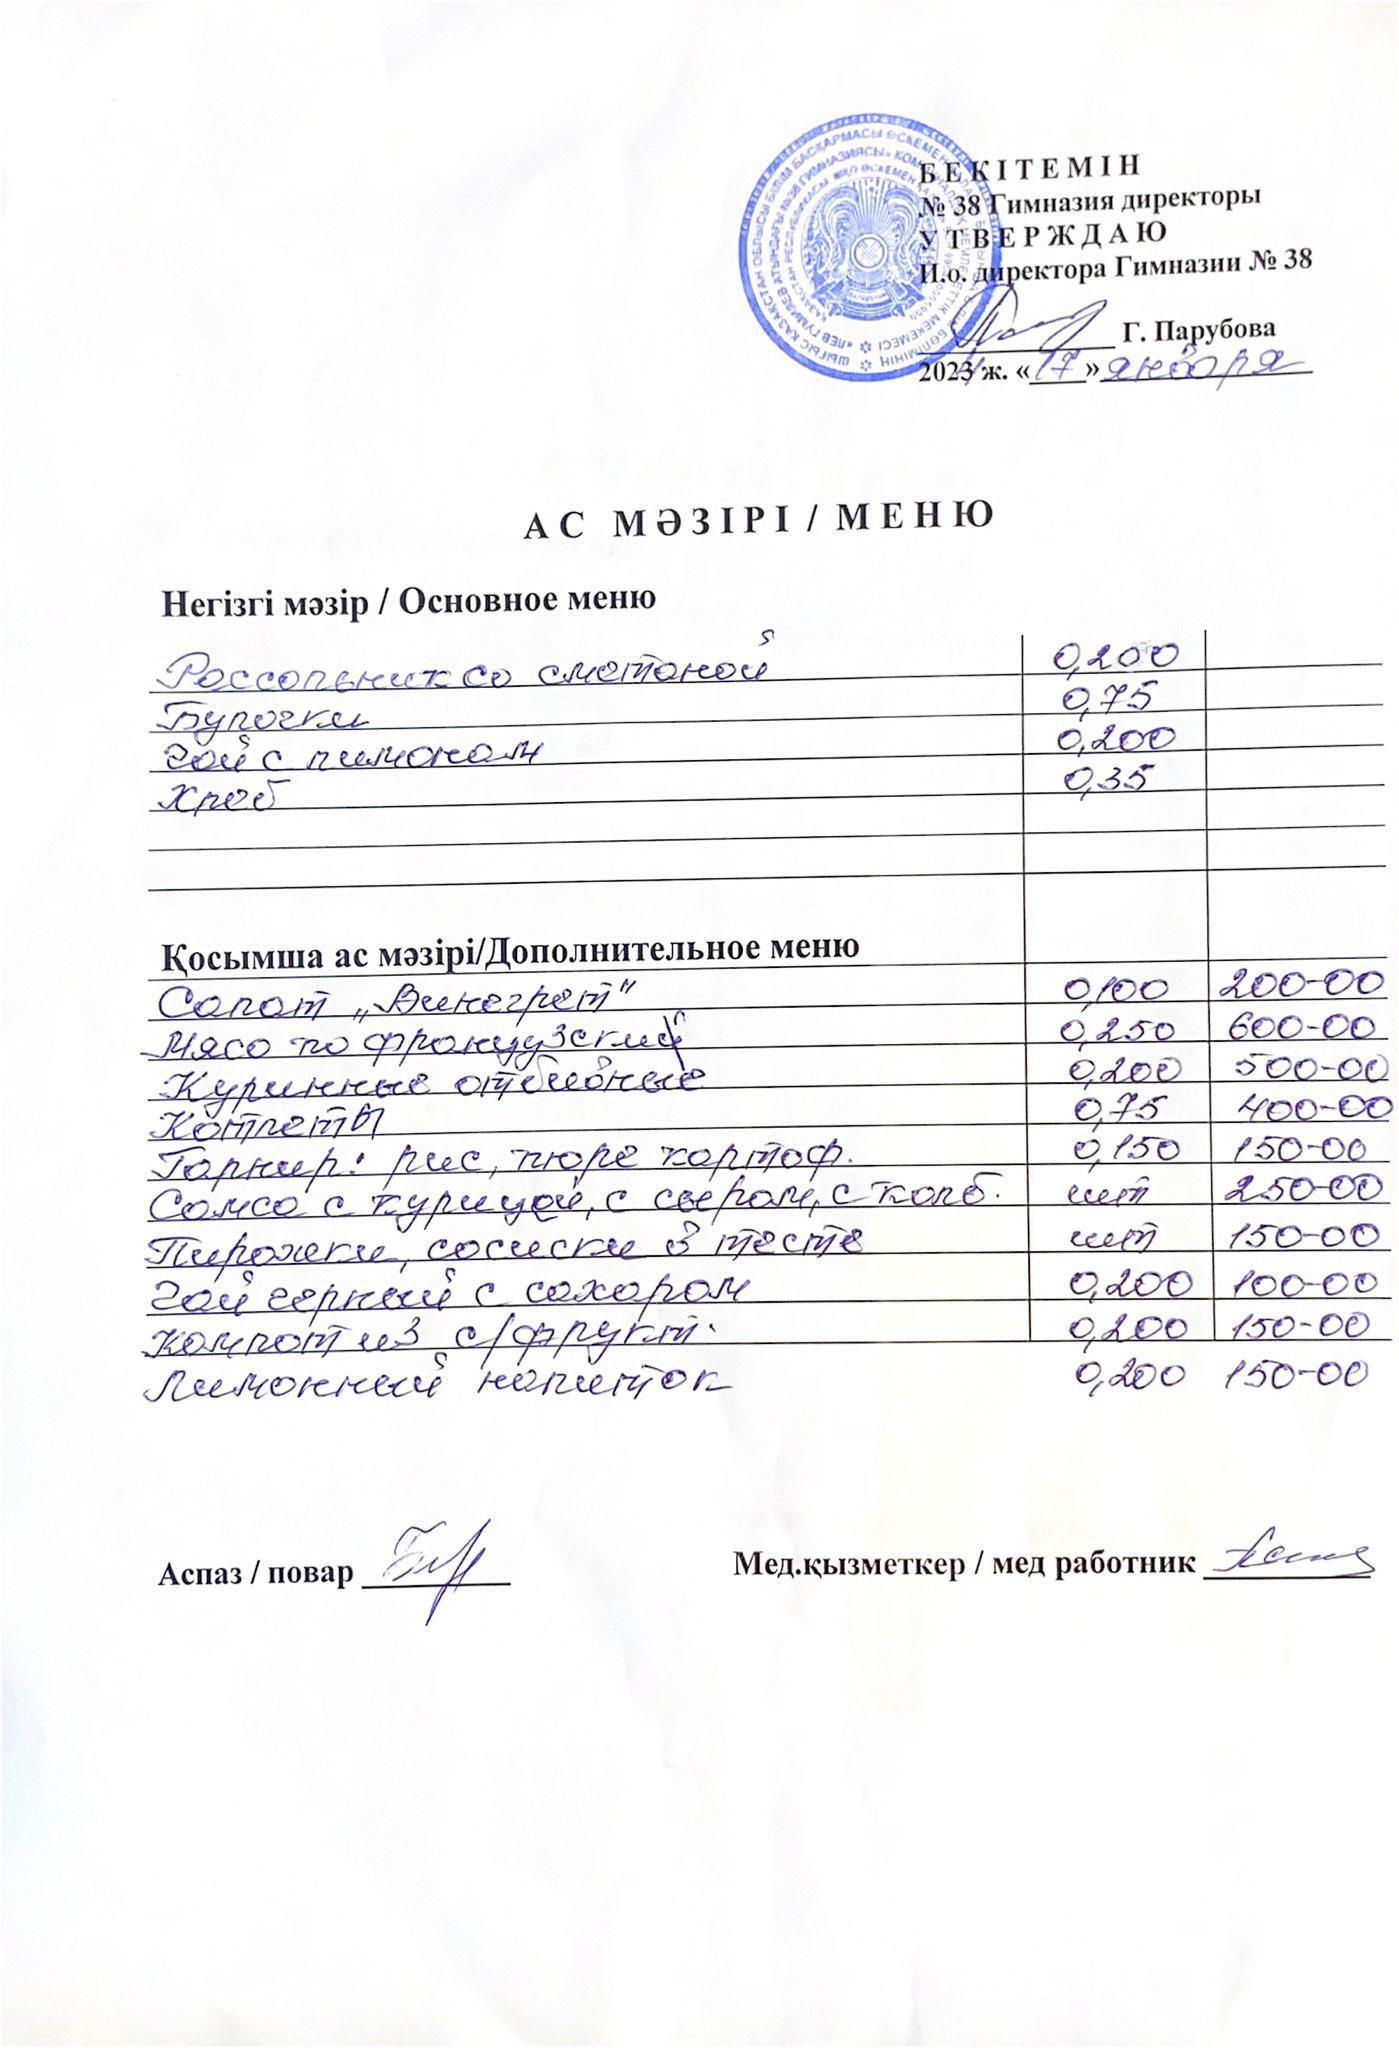 БЕКІТЕМІН
№ 38 Гимназия директоры
УТВЕРЖДАЮ
И.о. директора Гимназии № 38
Г. Парубова
2023 ж. «17» января
АС МӘЗІРІ / МЕНЮ
Негізгі мәзір / Основное меню
Рассольник со сметаной 0,200
Булочки 0,75
Чай с лимоном 0,200
Хлеб 0,35
Қосымша ас мәзірі/Дополнительное меню
Салат „Винегрет" 0,100 200-00
Мясо по французский 0,250 600-00
Куринные отбивные 0,200 500-00
Котлеты 0,75 400-00
Гарнир: рис, пюре картоф. 0,150 150-00
Самса с курицей, с сыром, с колб. шт 250-00
Пирожки, сосиски в тесте шт 150-00
Чай черный с сахаром 0,200 100-00
Компот из с/фрукт. 0,200 150-00
Лимонный напиток 0,200 150-00
Аспаз / повар
Мед.қызметкер / мед работник